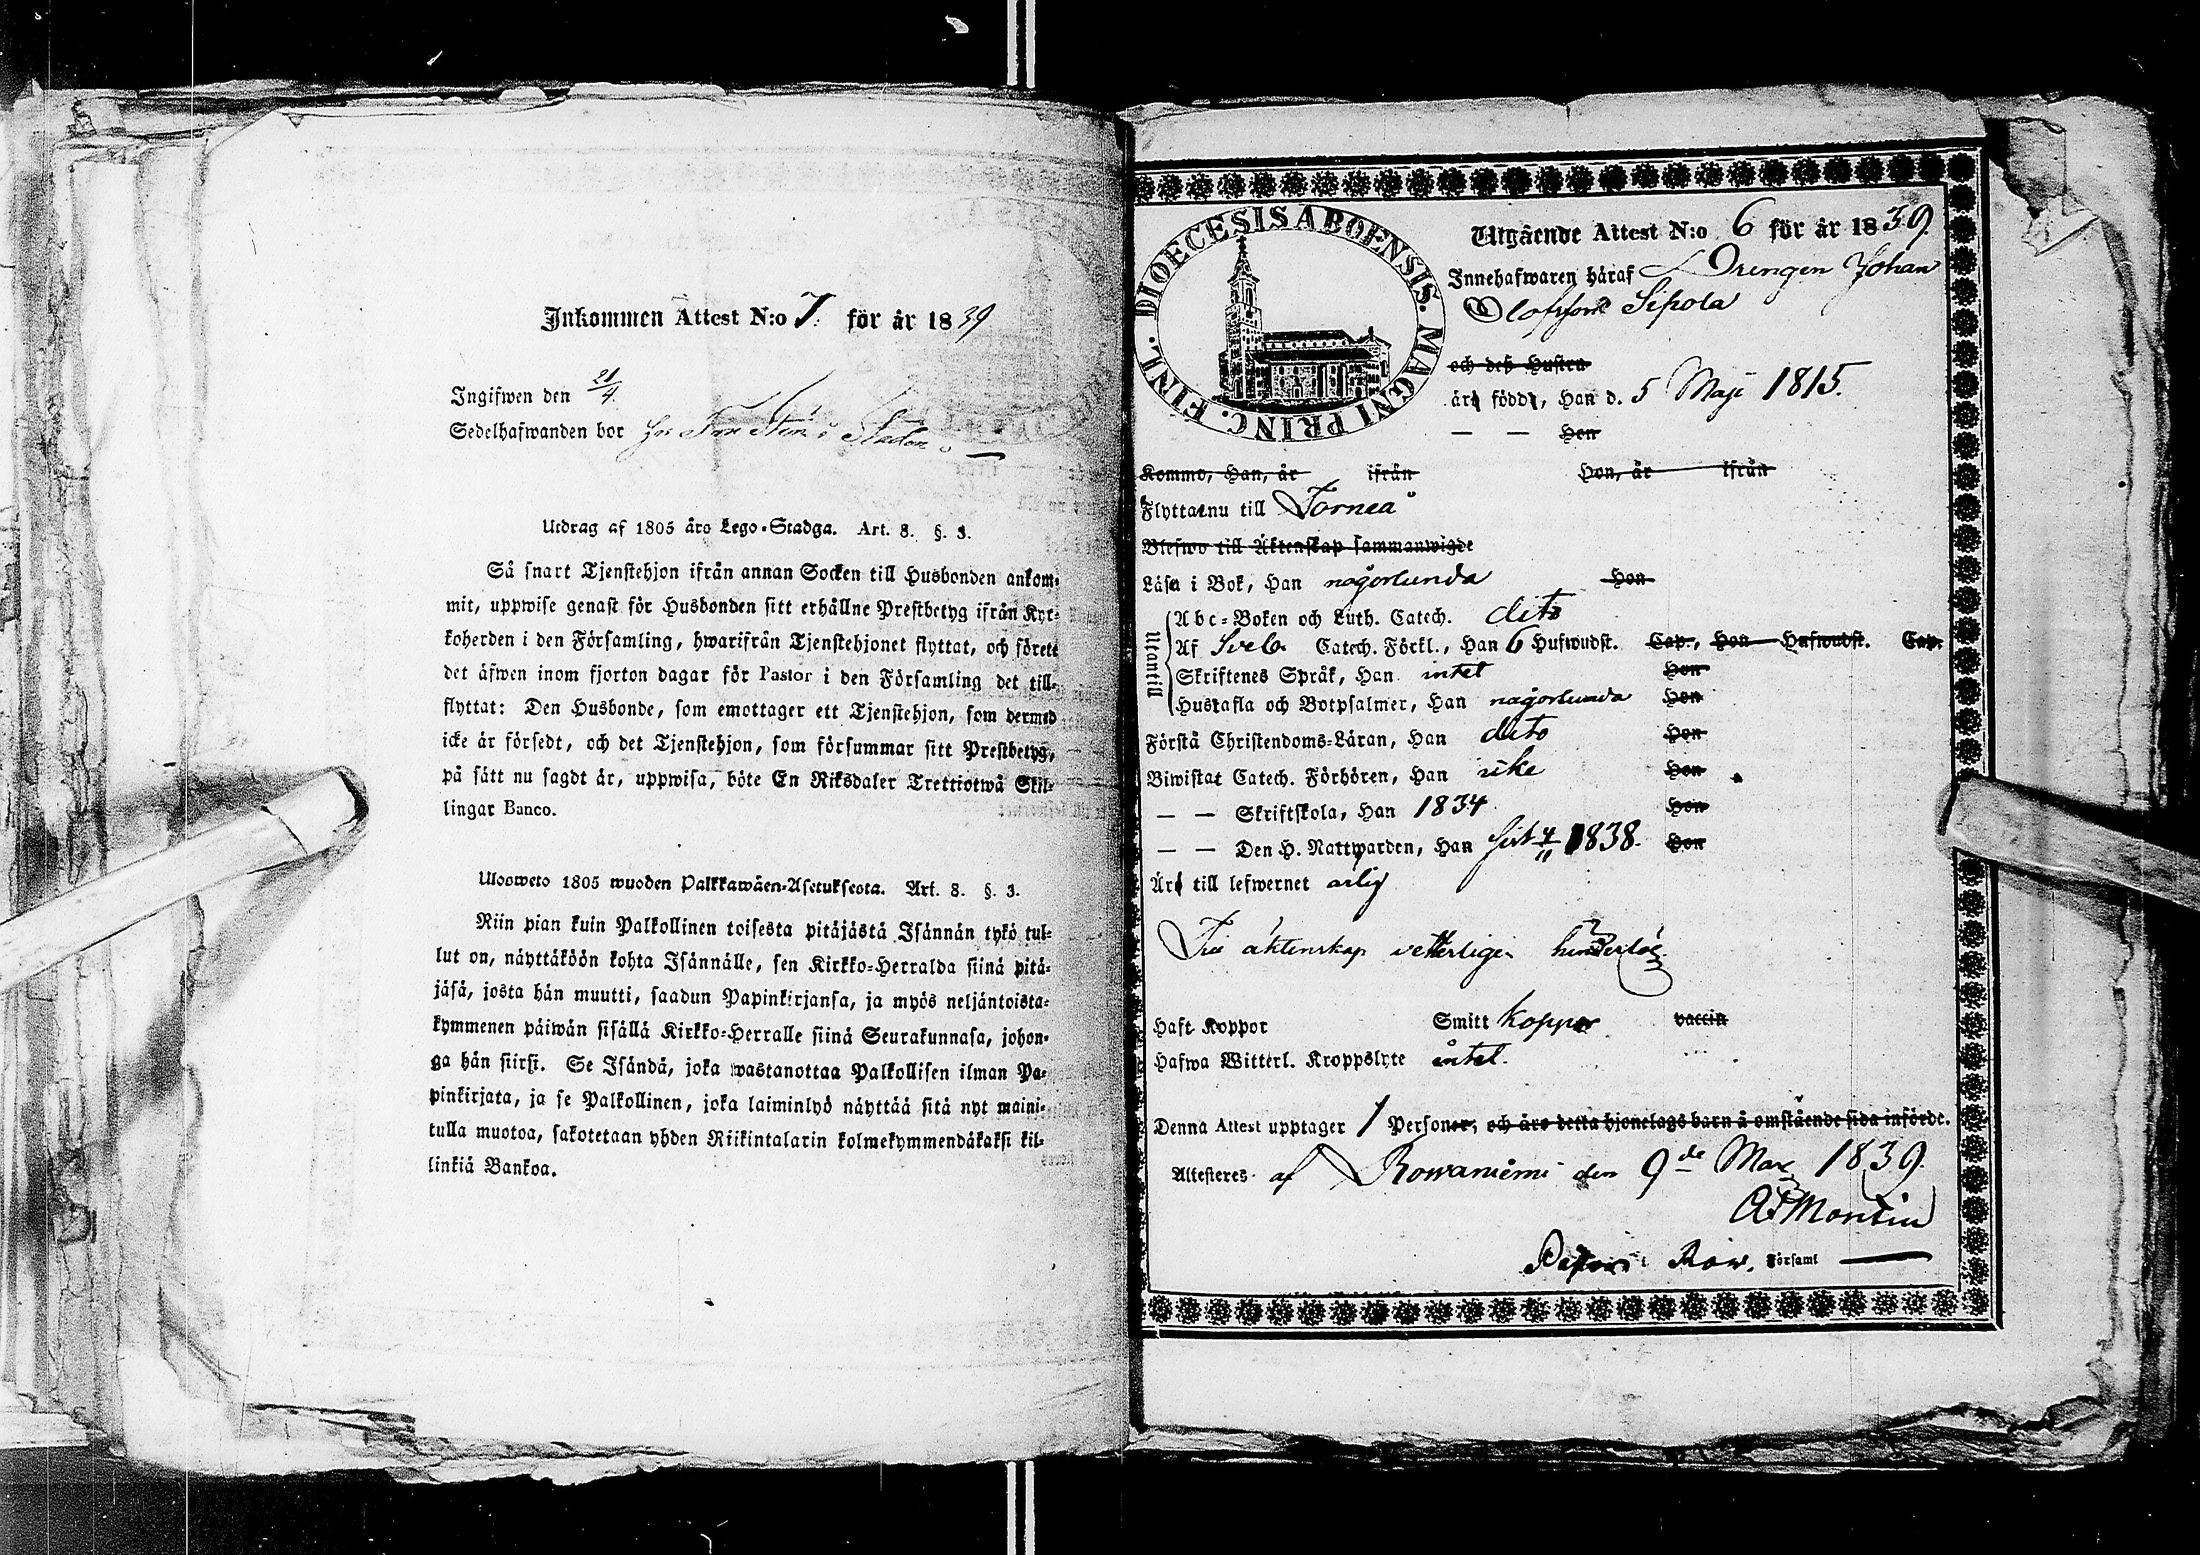 Inkommen Attest N:o 7. för år 1839
Ingifwen den 21/4.
Sedelhafwanden bor
Utdrag af 1805 års Lego-Stadga. Art. 8. §. 3.
Så snart Tjenstehjon ifrån annan Socken till Husbonden ankom-
mit, uppwise genast för Husbonden sitt erhållne Prestbetyg ifrån Kyr-
koherden i den Församling, hwarifrån Tjenstehjonet flyttat, och förete
det äfwen inom fjorton dagar för Pastor i den Församling det till-
flyttat: Den Husbonde, som emottager ett Tjenstehjon, som dermed
icke är försedt, och det Tjenstehjon, som försummar sitt Prestbetyg,
på sätt nu sagdt är, uppwisa, böte En Riksdaler Trettiotwå Skil-
lingar Banco.
Ulosweto 1805 wuoden Palkkawäen-Asetuksesta. Art. 8. §. 3.
Niin pian kuin Palkollinen toisesta pitäjästä Isännän tykö tul-
lut on, näyttäköön kohta Isännälle, sen Kirkko-Herralda siinä pitä-
jäsä, josta hän muutti, saadun Papinkirjansa, ja myös neljäntoista-
kymmenen päiwän sisällä Kirkko-Herralle siinä Seurakunnasa, johon-
ga hän siirsi. Se Isändä, joka wastanottaa Palkollisen ilman Pa-
pinkirjata, ja se Palkollinen, joka laiminlyö näyttää sitä nyt maini-
tulla muotoa, sakotetaan yhden Riikintalarin kolmekymmendäkaksi kil-
linkiä Bankoa.
DIOECESIS ABOENSIS. MAGNI PRINC. FINL.
Utgående Attest N:o 6 för år 1839.
Innehafwaren häraf Drengen Johan
Olofsson Sipola
och deß Hustru
äro födde, Han d. 5 Maji 1815.
— — Hon
Kommo, Han, år ifrån Hon, år ifrån
Flytta nu till Torneå
Blefwo till Äktenskap sammanwigde
Läsa i Bok, Han någorlunda Hon
Utantill
Abc-Boken och Luth. Catech. dito
Af Sveb. Catech. Förkl., Han 6 Hufwudst. Cap., Hon Hufwudst. Cap.
Skriftenes Språk, Han intet Hon
Hustafla och Botpsalmer, Han någorlunda Hon
Förstå Christendoms-Läran, Han dito Hon
Biwistat Catech. Förhören, Han icke Hon
— — Skriftskola, Han 1834 Hon
— — Den H. Nattwarden, Han sist 4/11 1838. Hon
Äro till lefwernet ärlig
Till äktenskap vetterligen hinderlös.
Haft Koppor Smitt koppor vaccin
Hafwa Witterl. Kroppslyte intet.
Denna Attest upptager 1 Personer, och äro detta hjonelags barn å omstående sida införde.
Attesteres af Rowaniemi den 9de Mars 1839.
Montin
Pastor i Row. Församl